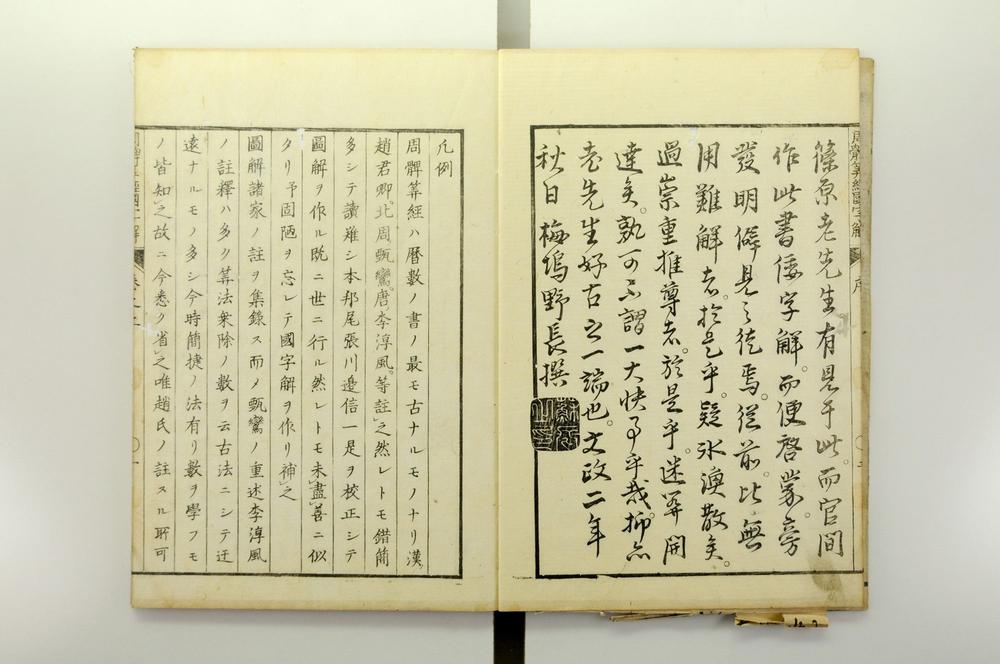 篠原老先生有見于此。而官間
作此書倭字解。而便啓蒙。旁
發明僻見之徒焉。從前此無
用難解者。於是乎。疑氷渙散矣。
過崇重推尊者。於是乎。迷霧開
達矣。孰可不謂一大快事乎哉。抑亦
老先生好古之一端也。文政二年
秋日 梅塢野長撰
凡例
周髀筭經ハ曆數ノ書ノ最モ古ナルモノナリ漢
趙君卿。北周甄鸞。唐李淳風。等註之然レトモ錯簡
多シテ讀難シ本邦尾張川邊信一是ヲ校正シテ
圖解ヲ作ル既ニ世ニ行ル然レトモ未盡善ニ似
タリ予固陋ヲ忘レテ國字解ヲ作リ補之
圖解諸家ノ註ヲ集錄ス而メ甄鸞ノ重述李淳風
ノ註釋ハ多ク筭法衆除ノ數ヲ云古法ニシテ迂
遠ナルモノ多シ今時簡捷ノ法有リ數ヲ學フモ
ノ皆知之故ニ今悉ク省之唯趙氏ノ註スル所可